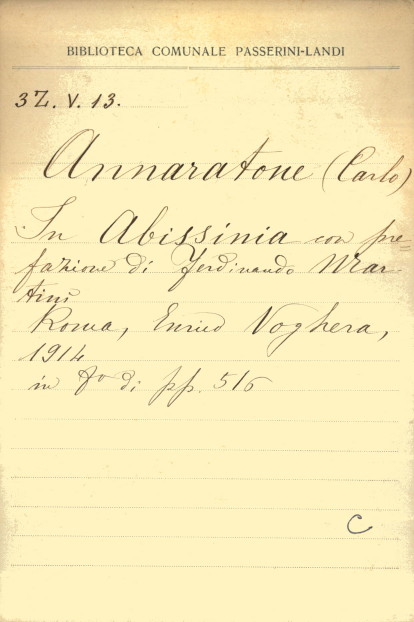 BIBLIOTECA COMUNALE PASSERINI-LANDI
3Z. V. 13.
Annaratone (Carlo)
In Abissinia con pre=
fazione di Ferdinando Mar-
tini
Roma, Enrico Voghera,
1914
in 8º di pp. 516
C